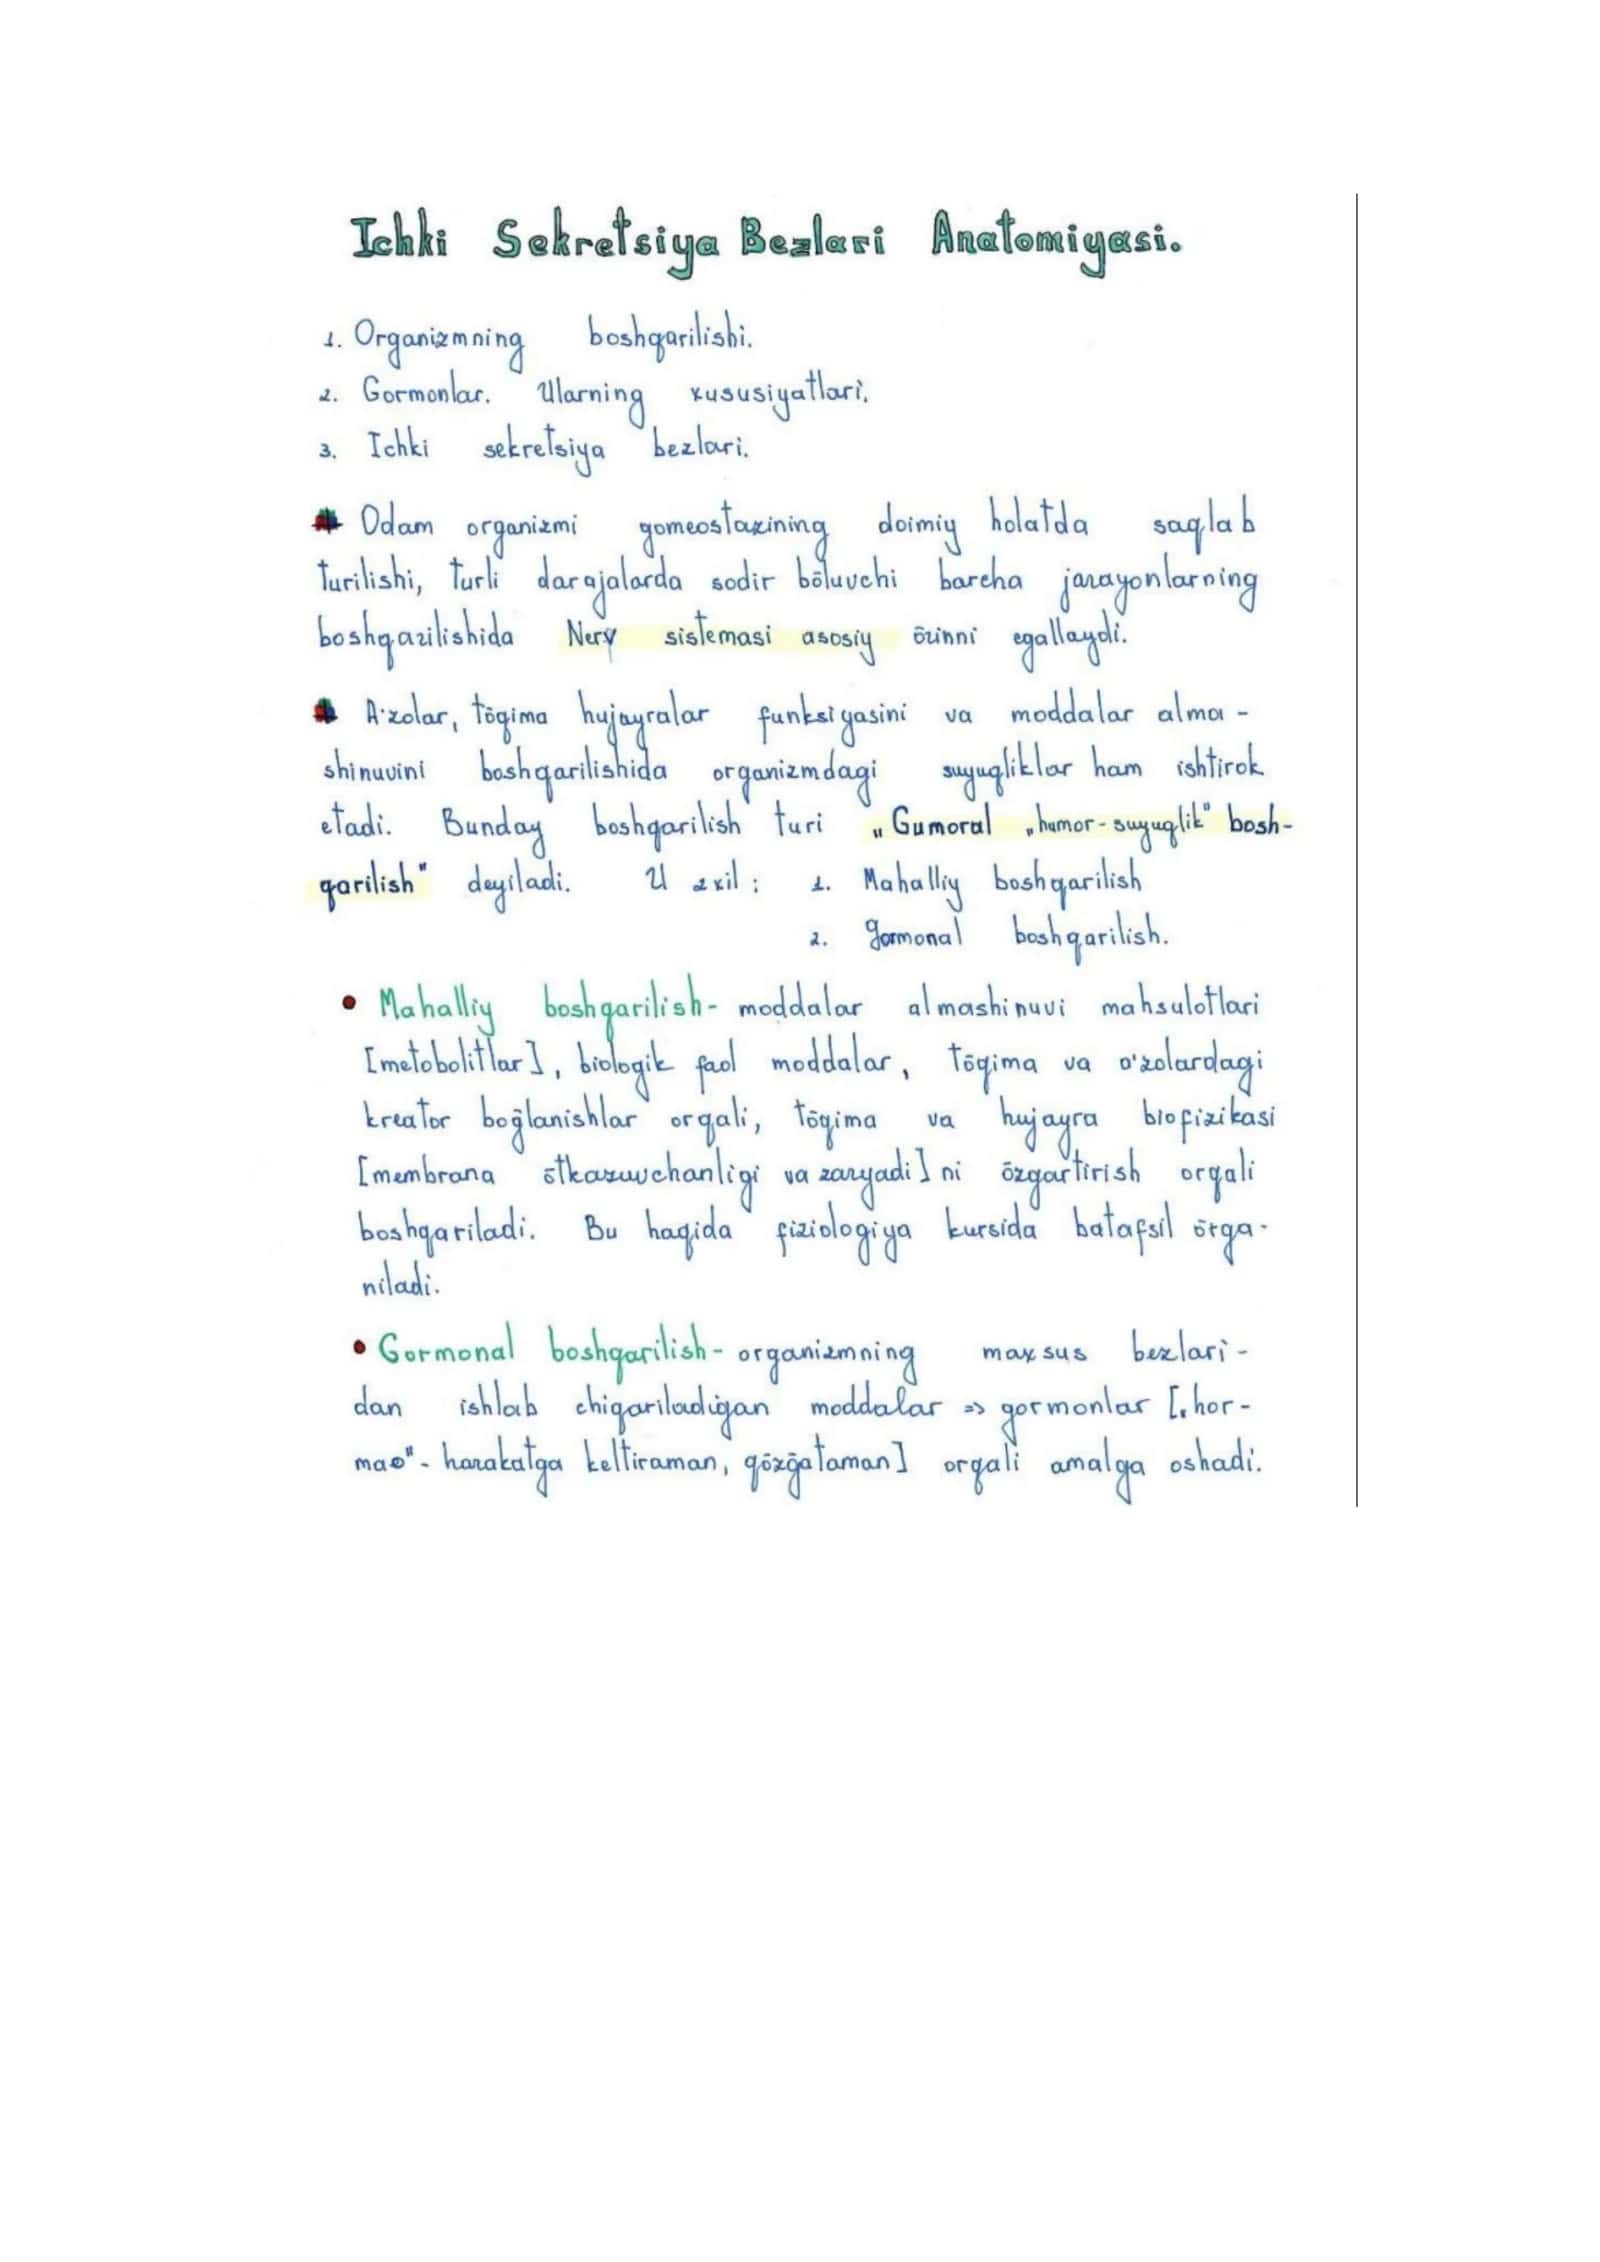 Ichki Sekretsiya Bezlari Anatomiyasi.
1. Organizmning boshqarilishi.
2. Gormonlar. Ularning xususiyatlari.
3. Ichki sekretsiya bezlari.
Odam organizmi gomeostazining doimiy holatda saqlab
turilishi, turli darajalarda sodir bōluvchi barcha jarayonlarning
boshqarilishida Nerv sistemasi asosiy ōrinni egallaydi.
A'zolar, tōqima hujayralar funksiyasini va moddalar alma-
shinuvini boshqarilishida organizmdagi suyuqliklar ham ishtirok
etadi. Bunday boshqarilish turi „Gumoral „humor-suyuqlik" bosh-
qarilish" deyiladi. U 2 xil: 1. Mahalliy boshqarilish
2. gormonal boshqarilish.
• Mahalliy boshqarilish- moddalar almashinuvi mahsulotlari
[metobolitlar], biologik faol moddalar, tōqima va a'zolardagi
kreator boḡlanishlar orqali, tōqima va hujayra biofizikasi
[membrana ōtkazuvchanligi va zaryadi] ni ōzgartirish orqali
boshqariladi. Bu haqida fiziologiya kursida batafsil ōrga-
niladi.
• Gormonal boshqarilish- organizmning maxsus bezlari-
dan ishlab chiqariladigan moddalar => gormonlar [„hor-
mao"- harakatga keltiraman, qōzḡataman] orqali amalga oshadi.